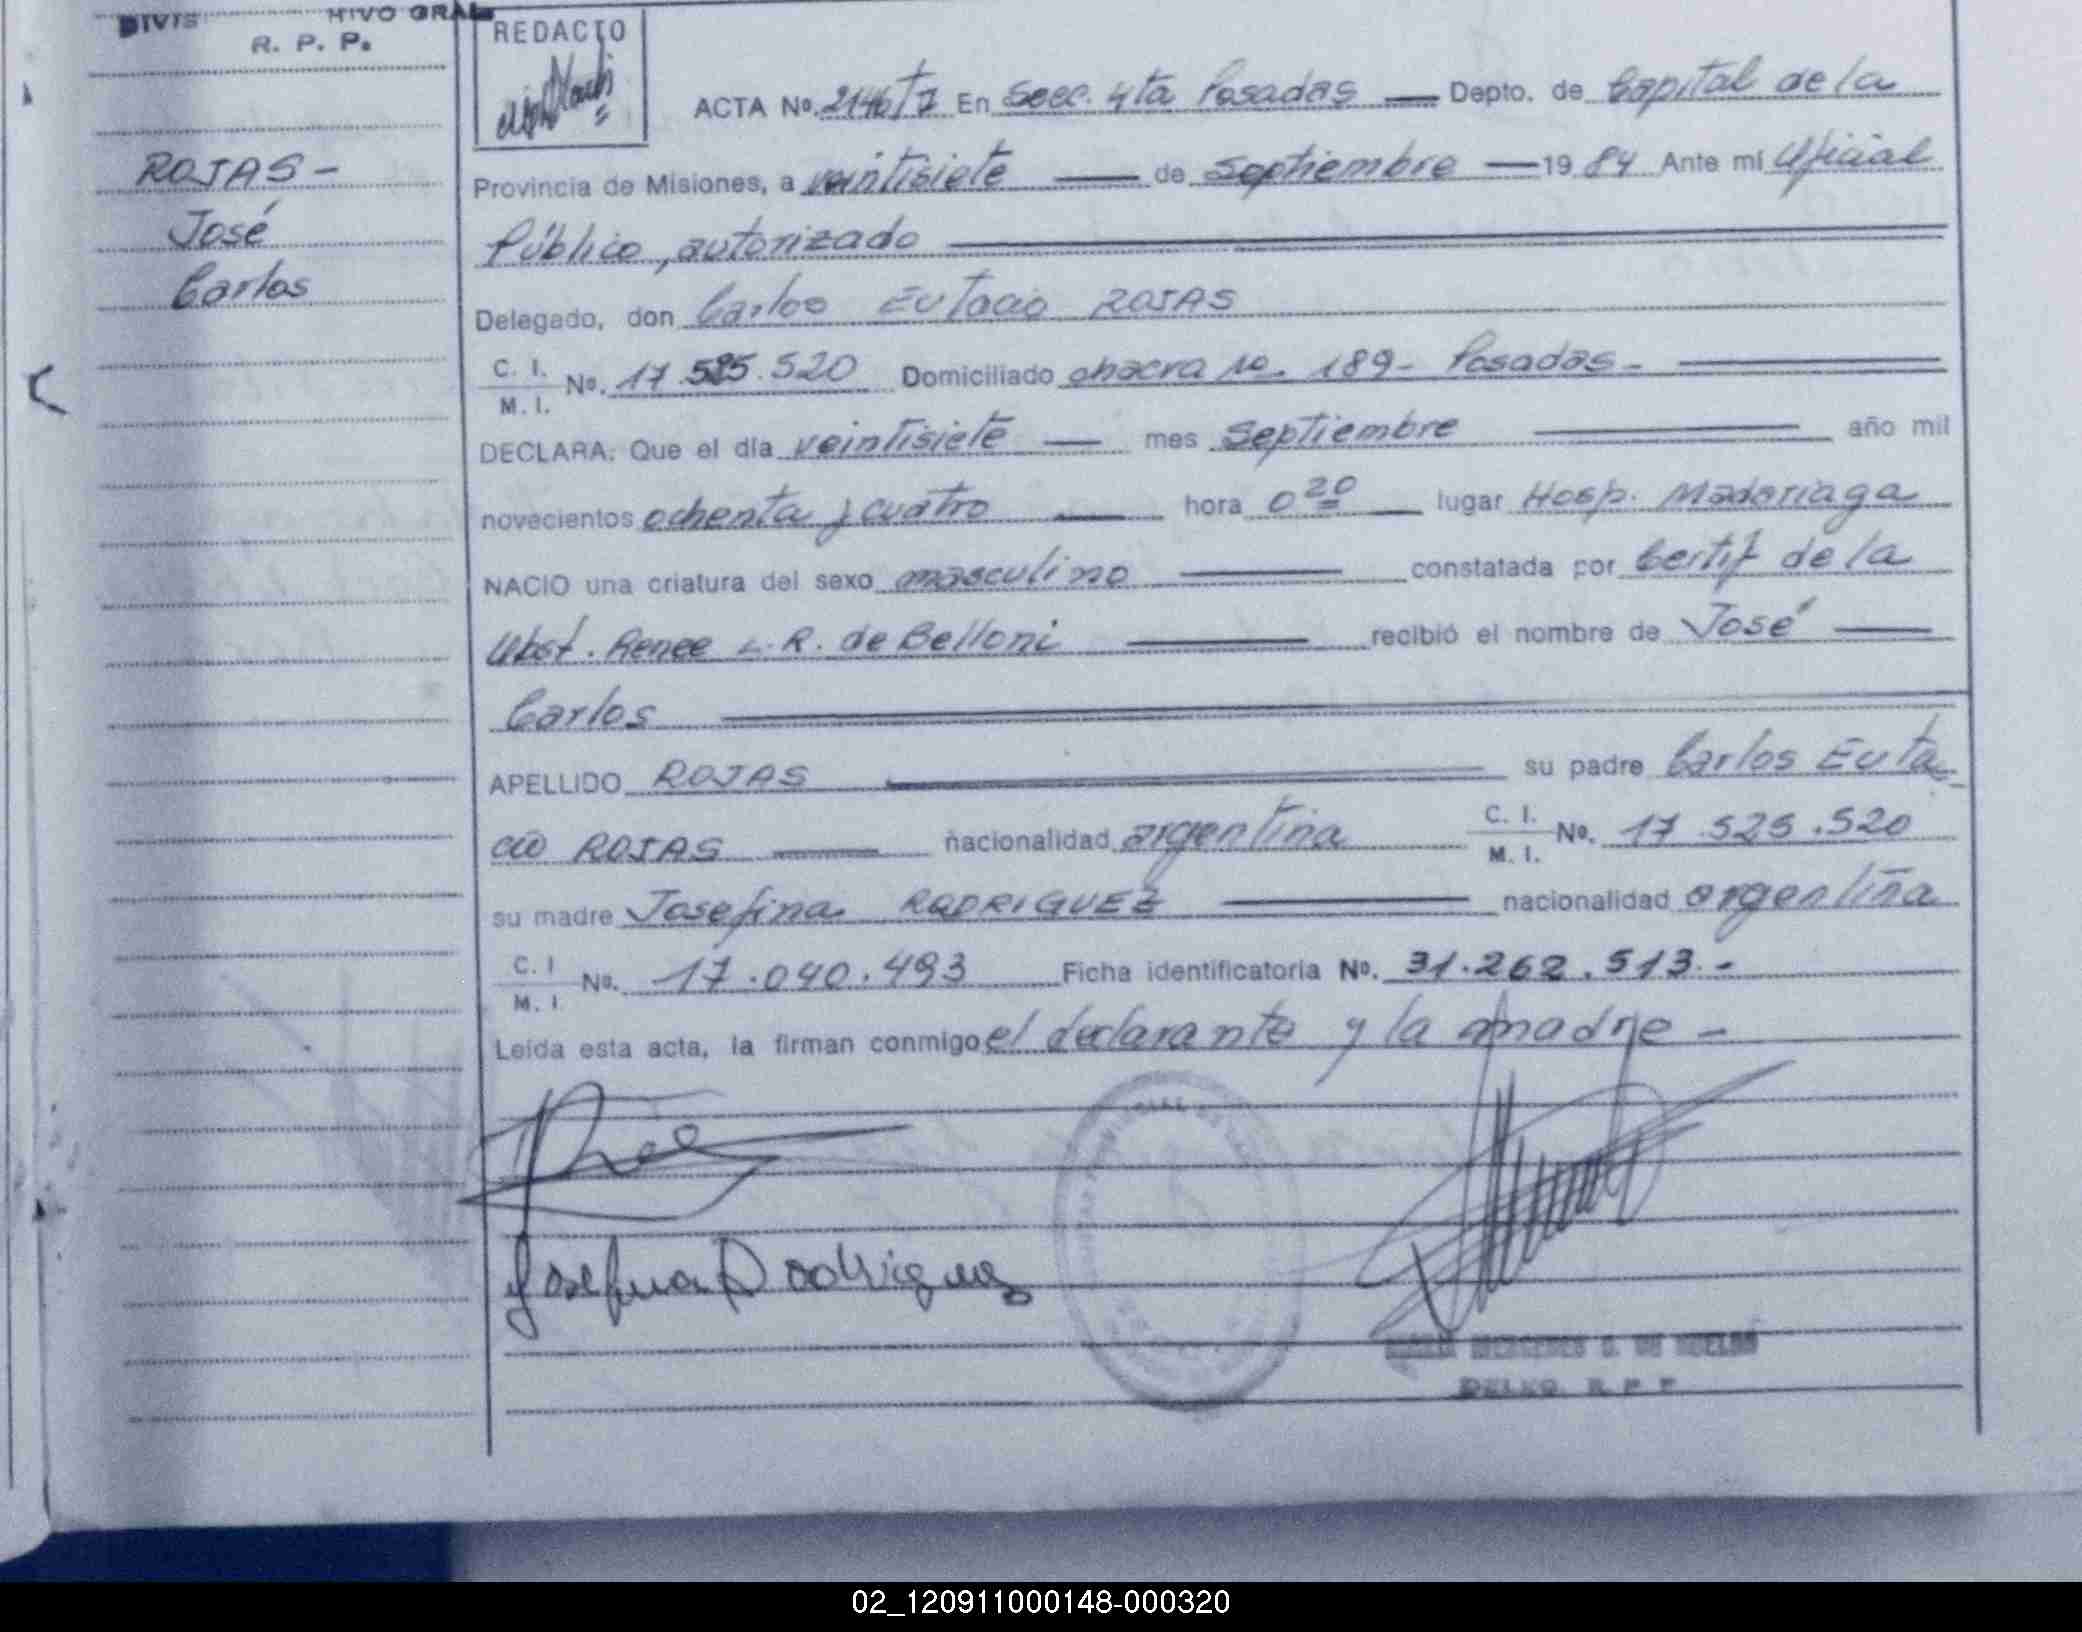 R. P. P.
REDACTO
ACTA Nº. En Secc. 4ta Posadas — Depto. de Capital de la
ROJAS -
Provincia de Misiones, a veintisiete — de Septiembre — 19 84 Ante mí Oficial
José
Público, autorizado
Carlos
Delegado, don Carlos Eutacio ROJAS
C. I.
M. I. Nº. 17.525.520 Domiciliado chacra no. 189 - Posadas -
DECLARA: Que el día veintisiete — mes Septiembre — año mil
novecientos ochenta y cuatro — hora 0 20 — lugar Hosp. Madariaga
NACIO una criatura del sexo masculino — constatada por Certif de la
Obst. Renee L. R. de Belloni — recibió el nombre de José —
Carlos
APELLIDO ROJAS — su padre Carlos Euta
cio ROJAS — nacionalidad argentina C. I.
M. I. Nº. 17.525.520
su madre Josefina RODRIGUEZ — nacionalidad argentina
C. I
M. I Nº. 17.040.493 Ficha identificatoria Nº. 31.262.513.-
Leída esta acta, la firman conmigo el declarante y la madre -
Josefina Rodriguez
02_120911000148-000320